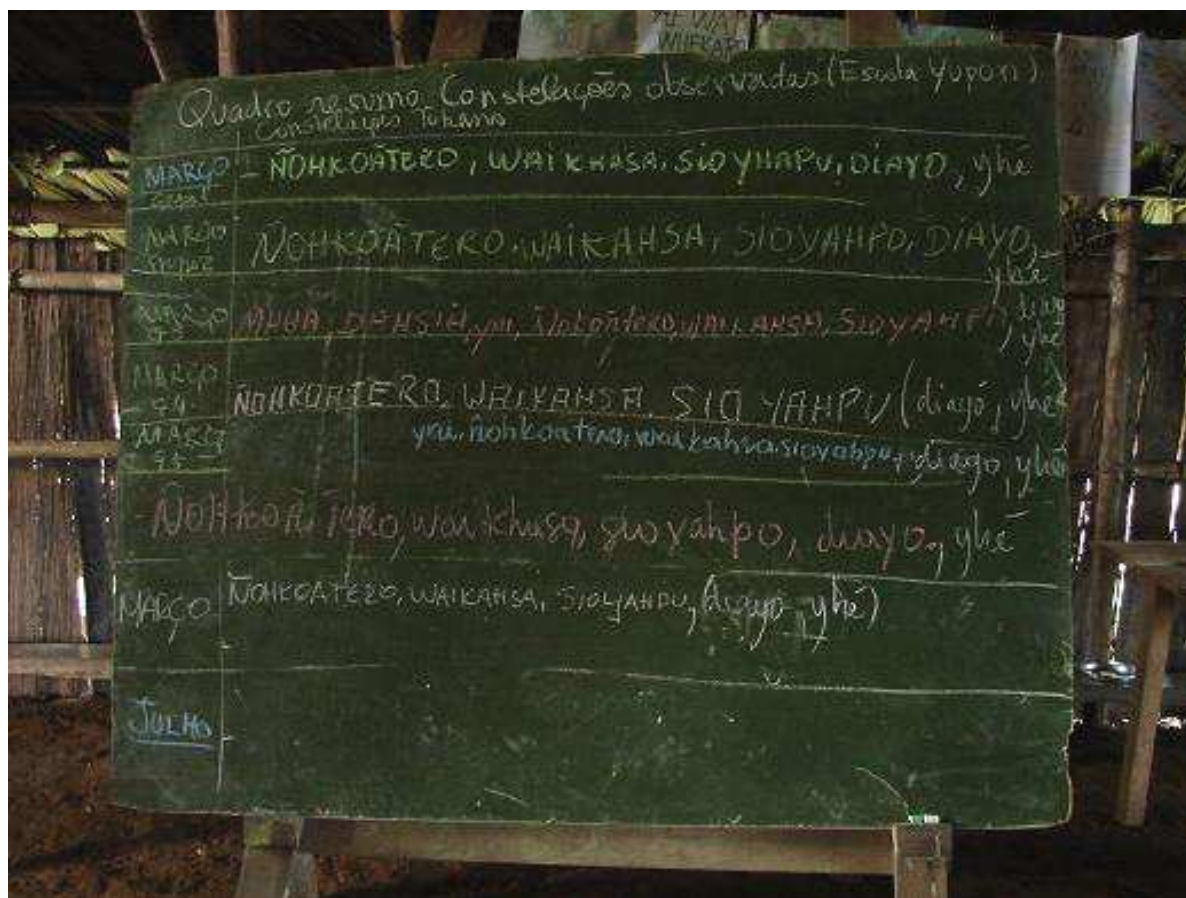 AE WAI
WIIEKAPO
Quadro resumo Constelações observadas (Escola Yupuri)
Constelações Tukano
MARÇO - ÑOHKOÃTERO, WAIKHASA, SIOYHAPU, DIAYO, yhé
MARÇO ÑOHKOÃTERO, WAIKAHSA, SIOYAHPO, DIAYO,
yhé
MARÇO MHUÃ, DAHSIA, yai, Ñohkoãtero, WAIKAHSA, SIOYAHPU,
yhé
MARÇO ÑOHKOATERO, WAIKAHSA, SIO YAHPU (diayó, yhé
94
MARÇO yai, ñohkoatero, waikahsa, sioyahpu, diayo, yhé
95
- ÑOHKOÃTERO, waikhasa, sioyahpo, diayo, yhé
MARÇO ÑOHKOATERO, WAIKAHSA, SIOYAHPU, (diayo, yhé)
JULHO